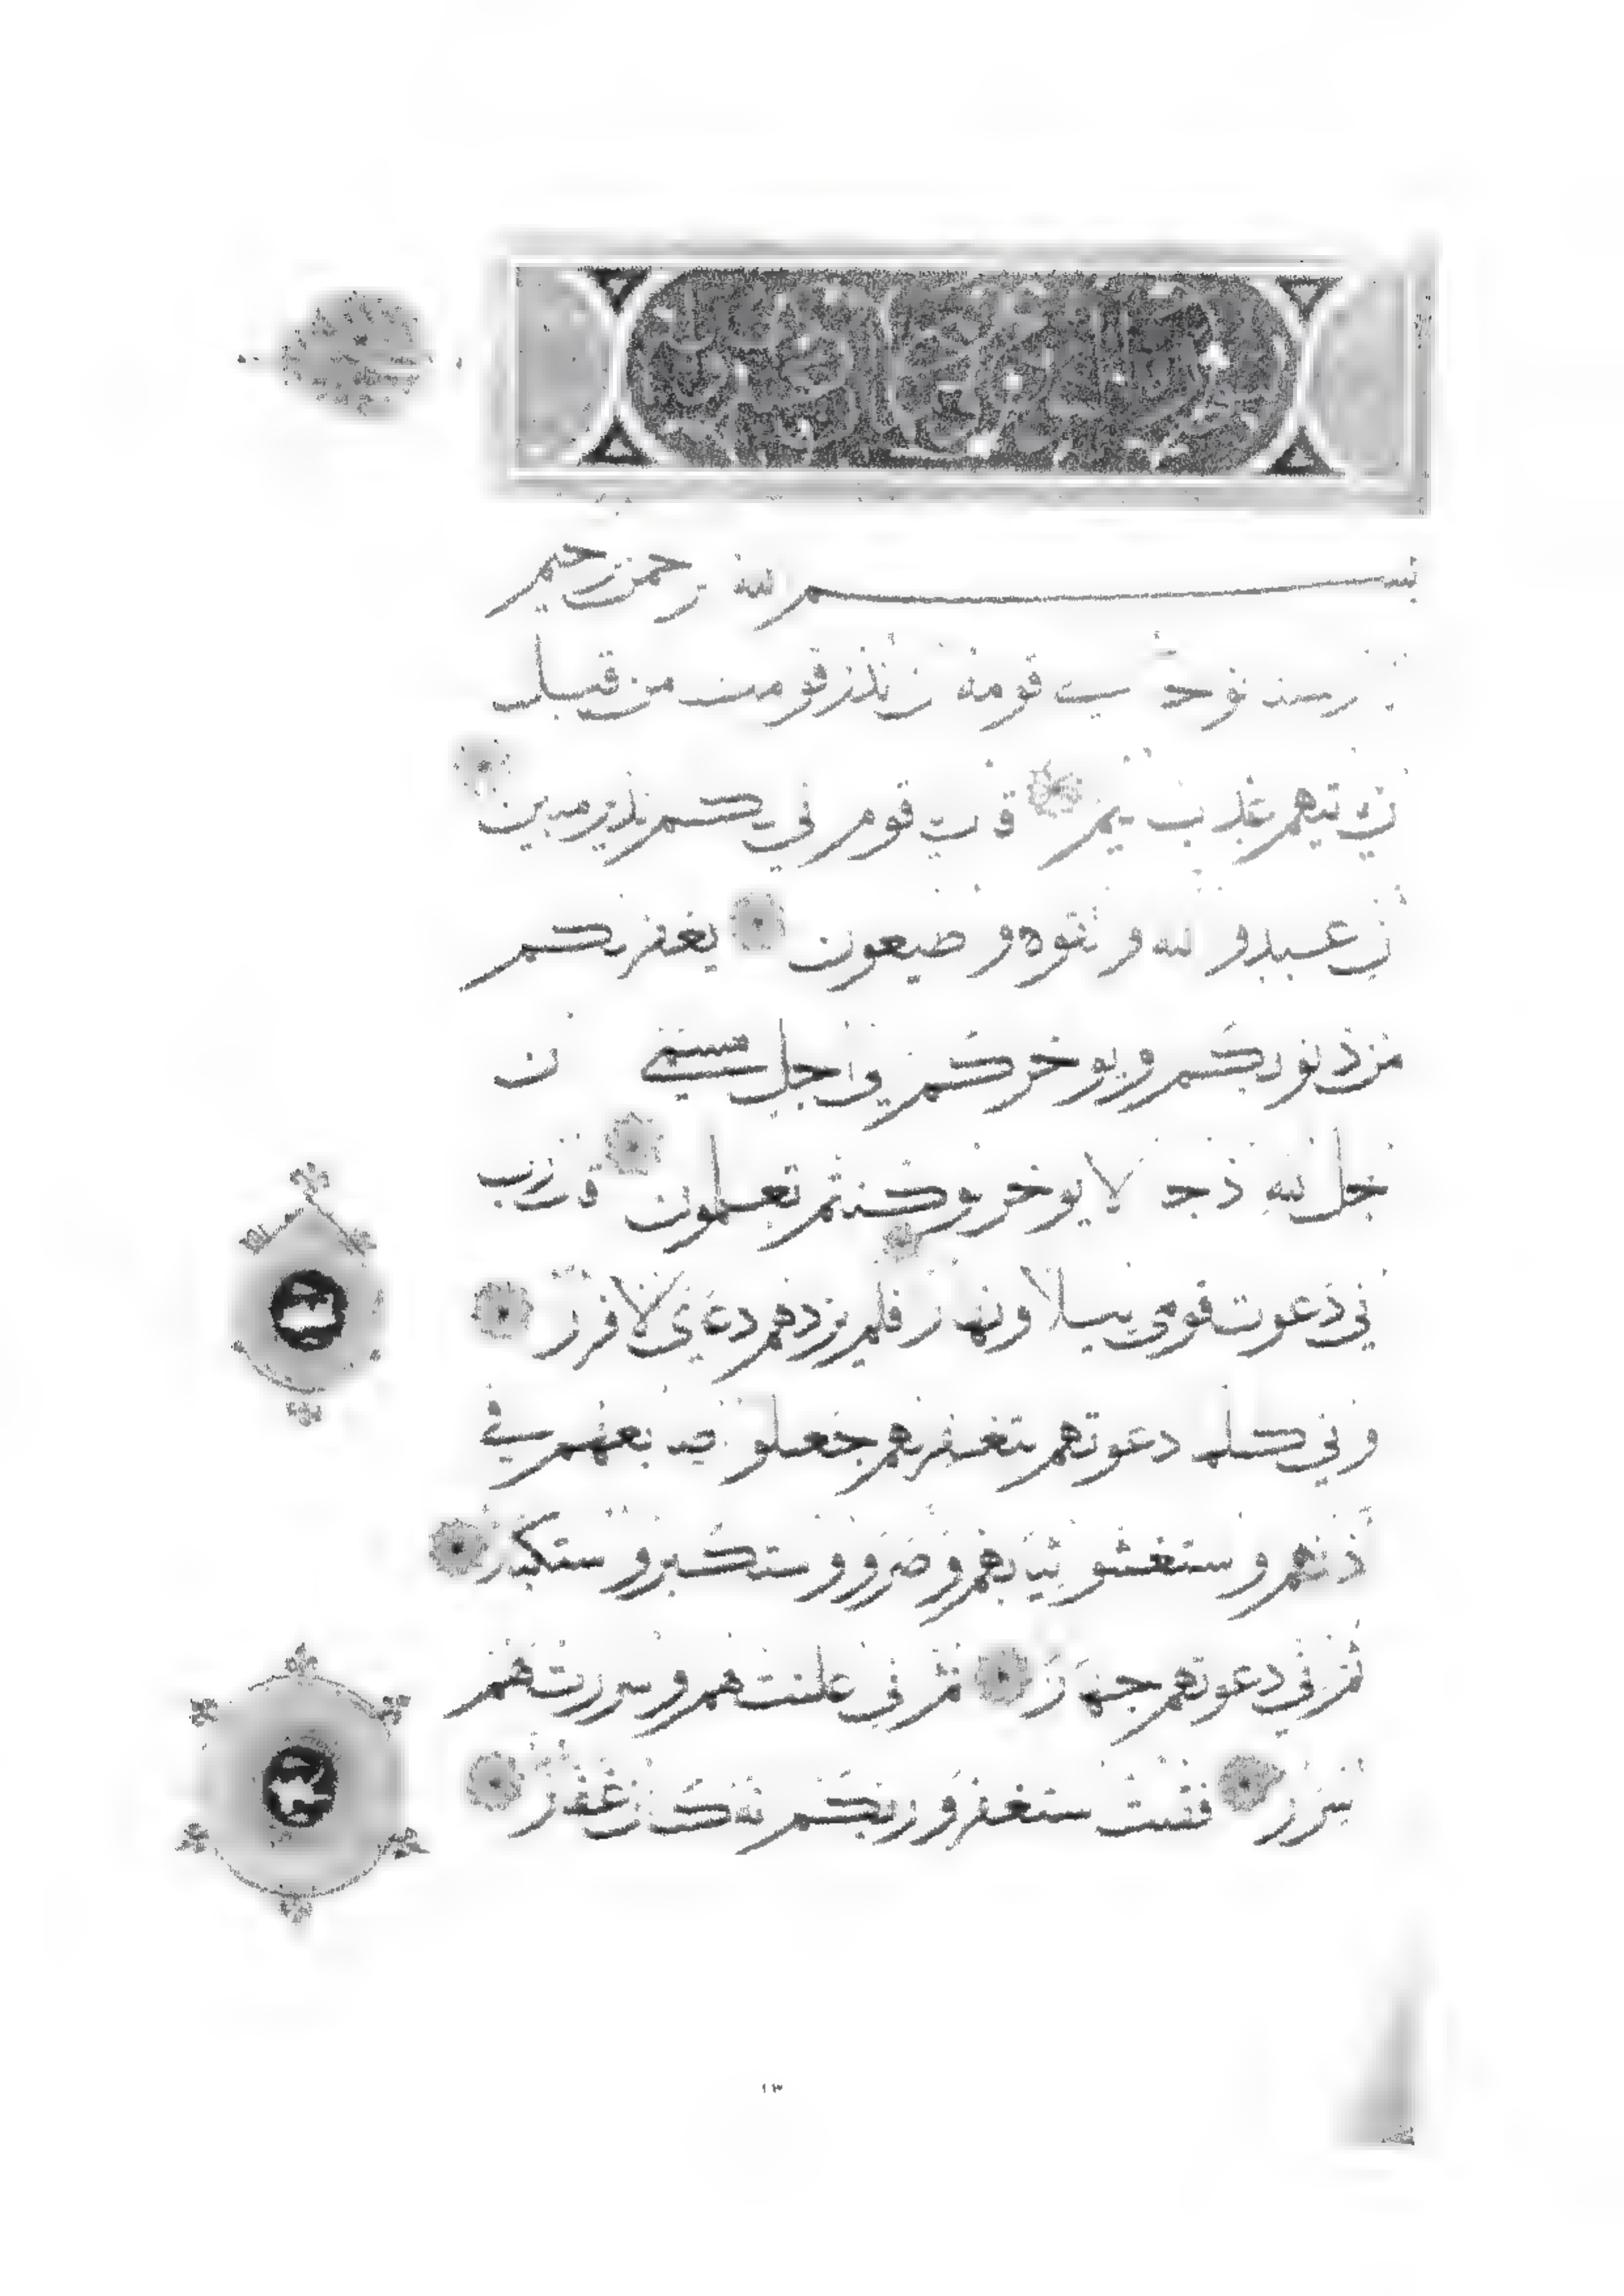 بسم الله الرحمن الرحيم
انا ارسلنا نوحا الى قومه ان انذر قومك من قبل
ان ياتيهم عذاب اليم قال يا قوم اني لكم نذير مبين
ان اعبدوا الله واتقوه واطيعون يغفر لكم
من ذنوبكم ويوخركم الى اجل مسمى ان
اجل الله اذا جا لا يوخر لو كنتم تعلمون قال رب
اني دعوت قومي ليلا ونهارا فلم يزدهم دعاي الا فرارا
واني كلما دعوتهم لتغفر لهم جعلوا اصابعهم في
اذانهم واستغشوا ثيابهم واصروا واستكبروا استكبارا
ثم اني دعوتهم جهارا ثم اني اعلنت لهم واسررت لهم
اسرارا فقلت استغفروا ربكم انه كان غفارا
١٣